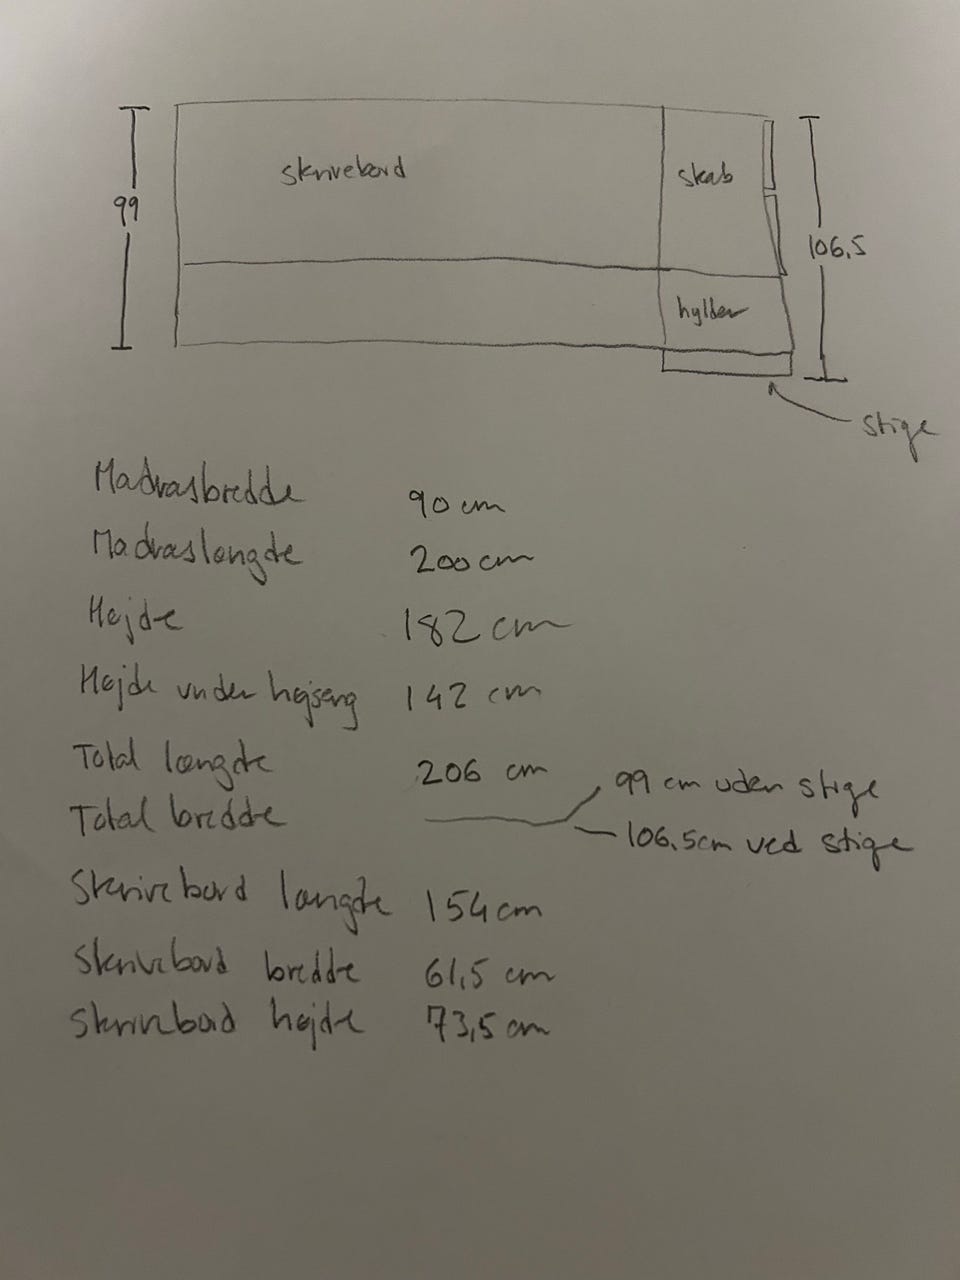 skrivebord
skab
99
106,5
hylder
stige
Madrasbredde 90 cm
Madraslængde 200 cm
Højde 182 cm
Højde under højseng 142 cm
Total længde 206 cm
Total bredde 99 cm uden stige
106,5cm ved stige
Skrivebord længde 154 cm
Skrivebord bredde 61,5 cm
Skrivebord højde 73,5 cm